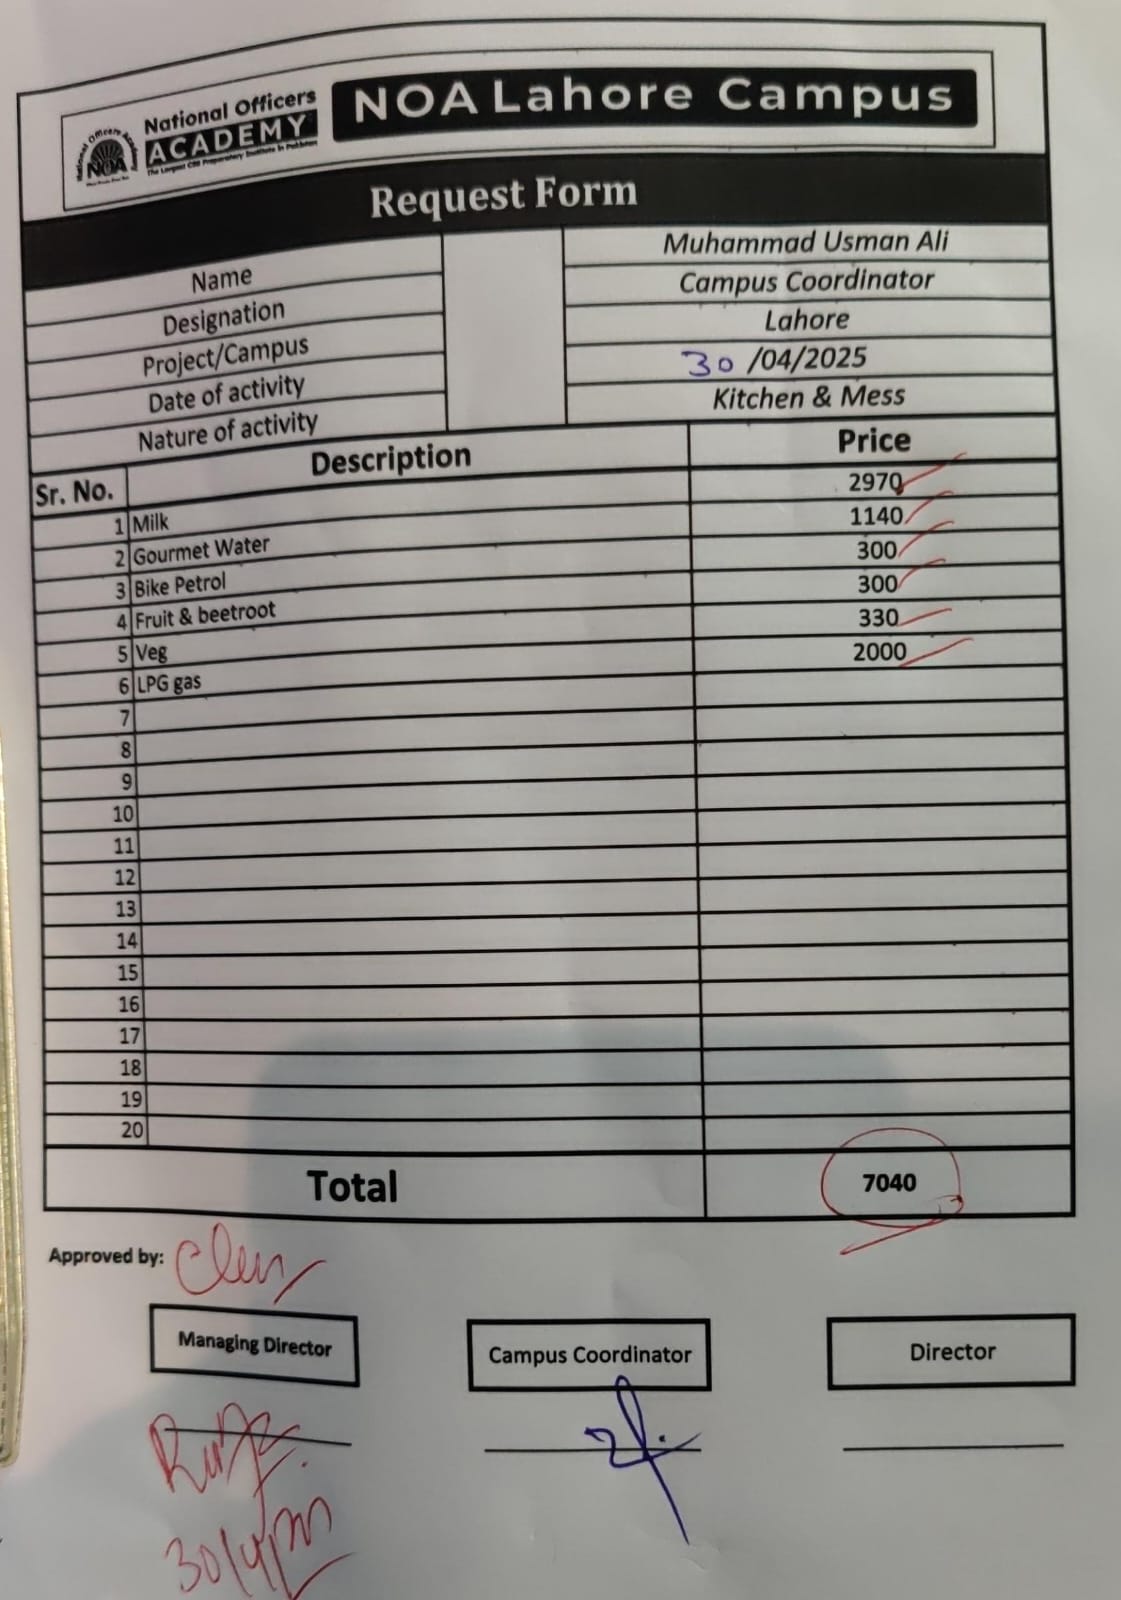 National Officers
ACADEMY
The Largest CSS Preparatory Institute in Pakistan
NOA
NOA Lahore Campus
Request Form
Name Muhammad Usman Ali
Designation Campus Coordinator
Project/Campus Lahore
Date of activity 30/04/2025
Nature of activity Kitchen & Mess
Sr. No. Description Price
1 Milk 2970
2 Gourmet Water 1140
3 Bike Petrol 300
4 Fruit & beetroot 300
5 Veg 330
6 LPG gas 2000
7
8
9
10
11
12
13
14
15
16
17
18
19
20
Total 7040
Approved by:
Managing Director Campus Coordinator Director